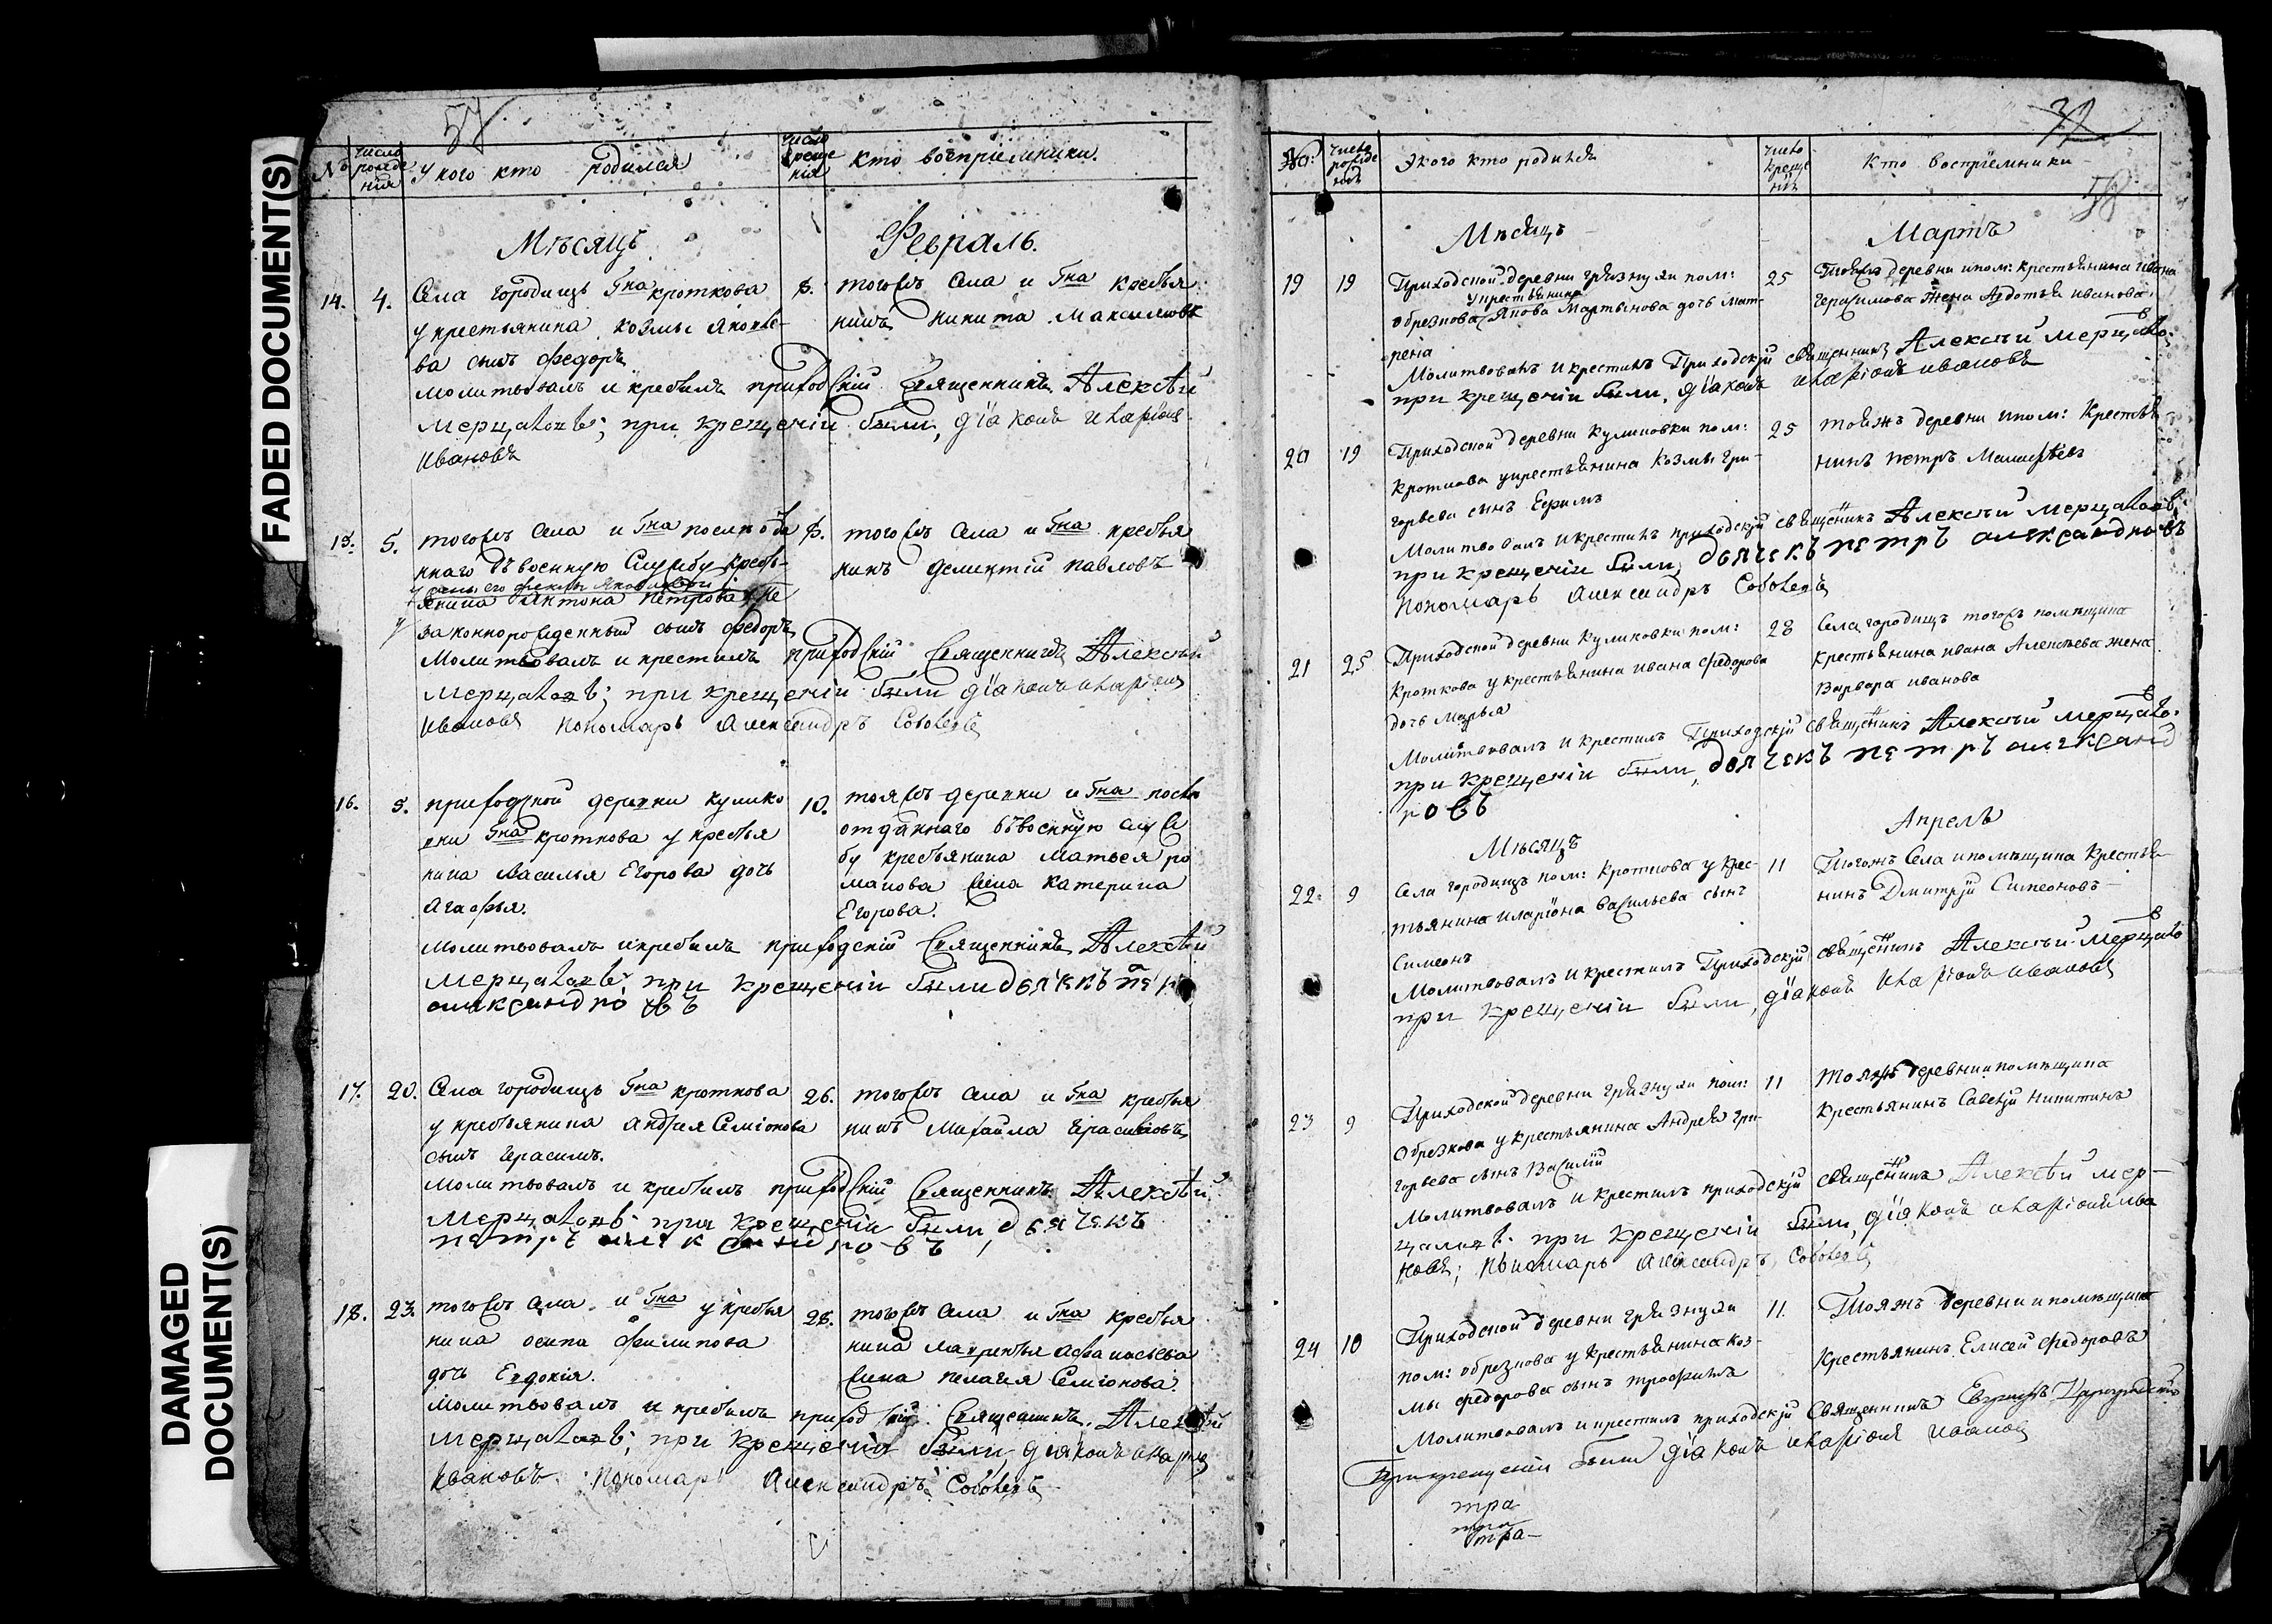 FADED DOCUMENT(S)
DAMAGED
DOCUMENT(S)
57
№
число рожде нія
У кого кто родился
число креще нія
кто воспріемники.
Мѣсяцъ
Февраль.
14. 4. Села городищъ Гна кроткова
у крестьянина козмы яковле-
ва сынъ федоръ
8. тогожъ села и Гна крестья
нинъ никита Максимовъ
молитвовалъ и крестилъ приходскій священникъ Алексѣй
Мерцаловъ; при крещеніи были, діаконъ Иларіонъ
Ивановъ
15. 5. тогожъ села и Гна послѣ отда
ннаго въ военную службу кресть-
янина Антона петрова не
законнорожденный сынъ федоръ
8. тогожъ села и Гна крестья
нинъ дементій павловъ
Молитвовалъ и крестилъ приходскій священникъ Алексѣй
Мерцаловъ; при крещеніи были діаконъ Иларіонъ
Ивановъ пономарь Александръ Соболевъ
16. 5. приходской деревни кулико
вки Гна кроткова у крестья
нина василья Егорова дочь
Агафья.
10. тояжъ деревни и Гна послѣ
отданнаго въ военную служ
бу крестьянина матвея ро
манова жена катерина
Егорова.
молитвовалъ и крестилъ приходскій священникъ Алексѣй
Мерцаловъ при крещеніи были дьячекъ петръ
александровъ
17. 20. Села городищъ Гна кроткова
у крестьянина андрея Семіонова
сынъ герасимъ.
26. тогожъ села и Гна крестья
нинъ михайла герасимовъ
молитвовалъ и крестилъ приходскій священникъ Алексѣй
Мерцаловъ при крещеніи были, дьячекъ
петръ александровъ
18. 23. тогожъ села и Гна у крестья
нина осипа филипова
дочь Евдокія.
28. тогожъ села и Гна крестья
нина лаврентья афанасьева
жена пелагея Семіонова.
Молитвовалъ и крестилъ приходскій священникъ Алексѣй
Мерцаловъ; при крещеніи были, діаконъ Иларіонъ
Ивановъ. Пономарь Александръ Соболевъ
32
58
№:
число рожде нія
У кого кто родился
число креще нія
Кто воспріемники
Мѣсяцъ
Мартъ
19 19 Приходской деревни грязнухи пом:
у крестьянина
обрезкова Якова Мартынова дочь Мат-
рена
25 Тояжъ деревни и пом: крестьянина ивана
герасимова жена Авдотья иванова
Молитвовалъ и крестилъ Приходскій священникъ Алексѣй Мерцаловъ
при крещеніи были, діаконъ Иларіонъ ивановъ
20 19 Приходской деревни куликовки пом:
кроткова у крестьянина козмы гри-
горьева сынъ Ефимъ
25 тояжъ деревни и пом: крестья
нинъ петръ
Молитвовалъ и крестилъ приходскій священикъ Алексѣй Мерцаловъ
при крещеніи были, дьячекъ петръ александровъ
пономарь Александръ Соболевъ
21 25 Приходской деревни куликовки пом:
кроткова у крестьянина ивана федорова
дочь Марья
28 Села городищъ тогожъ помѣщика
крестьянина ивана Алексѣева жена
Варвара иванова
Молитвовалъ и крестилъ Приходскій священикъ Алексѣй Мерцаловъ
при крещеніи были, дьячекъ петръ александ
ровъ
Мѣсяцъ
Апрель
22. 9 Села городищъ пом: кроткова у крес-
тьянина иларіона Васильева сынъ
Симеонъ
11 Тогожъ Села и помѣщика крестья-
нинъ Дмитрій Симеоновъ
Молитвовалъ и крестилъ Приходскій священикъ Алексѣй Мерцаловъ
при крещеніи были, діаконъ Иларіонъ ивановъ
23 9 Приходской деревни грязнухи пом:
обрезкова у крестьянина Андрея гри-
горьева сынъ Василій
11 тояжъ деревни и помѣщика
крестьянинъ Савелій никитинъ
Молитвовалъ и крестилъ приходскій священикъ Алексѣй мер-
цаловъ при крещеніи были, діаконъ Иларіонъ Ива
новъ; Пономарь Александръ Соболевъ
24 10 Приходской деревни грязнухи
пом: обрезкова у крестьянина коз-
мы федорова сынъ трофимъ
11. Тояжъ деревни и помѣщика
крестьянинъ Елисей федоровъ
Молитвовалъ и крестилъ приходскій священникъ
При крещеніи были діаконъ Иларіонъ Ивановъ
тра
тра
тра